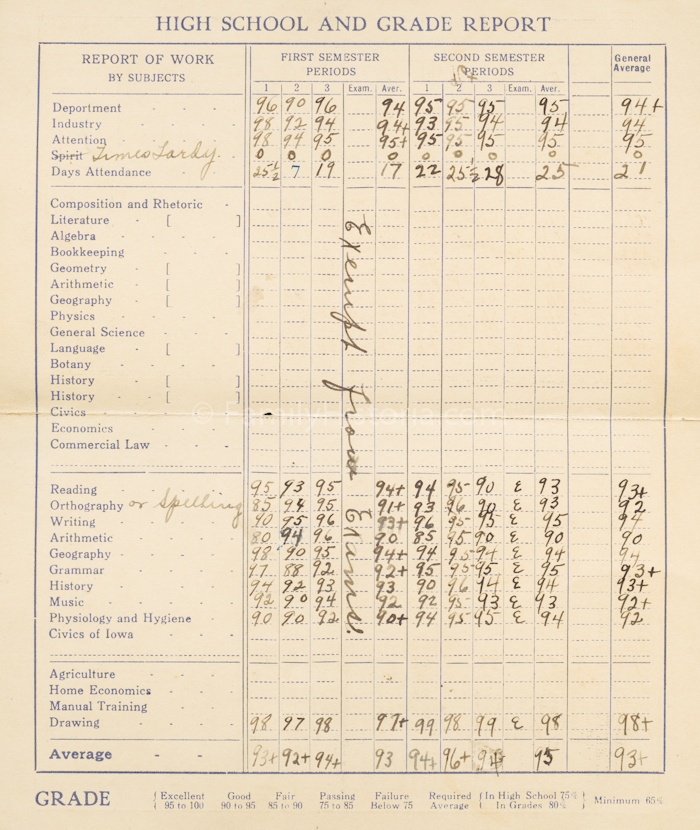 HIGH SCHOOL AND GRADE REPORT
REPORT OF WORK BY SUBJECTS
FIRST SEMESTER PERIODS
SECOND SEMESTER PERIODS
General Average
1 2 3 Exam. Aver. 1 2 3 Exam. Aver.
Department - - - 96 90 96 94 95 95 95 95 94+
Industry - - - 98 92 94 94+ 93 95 94 94 94
Attention - - - 98 94 95 95+ 95 95 95 95 95
Spirit Times Tardy 0 0 0 0 0 0 0 0 0
Days Attendance - - 25½ 7 19 17 22 25½ 28 25 21
Composition and Rhetoric -
Literature - [ ]
Algebra - - -
Bookkeeping - - -
Geometry - [ ]
Arithmetic - [ ]
Geography - [ ]
Physics - - -
General Science - - -
Language - [ ]
Botany - - -
History - [ ]
History - [ ]
Civics - - -
Economics - - -
Commercial Law - - -
Exempt from Exams.
© FamilyPretoria.com
Reading - - - 95 93 95 94+ 94 95 90 E 93 93+
Orthography or Spelling 85 94 95 91+ 93 96 90 E 93 92
Writing - - - 90 95 96 93+ 96 95 95 E 95 94
Arithmetic - - - 80 94 96 90 85 95 90 E 90 90
Geography - - - 98 90 95 94+ 94 95 94 E 94 94
Grammar - - - 97 88 92 92+ 95 95 95 E 95 93+
History - - - 94 92 93 93 90 96 94 E 94 93+
Music - - - 92 90 94 92 92 95 93 E 93 92+
Physiology and Hygiene - 90 90 92 90+ 94 95 95 E 94 92
Civics of Iowa - - -
Agriculture - - -
Home Economics - - -
Manual Training - - -
Drawing - - - 98 97 98 97+ 99 98 99 E 98 98+
Average - - 93+ 92+ 94+ 93 94+ 96+ 94 95 93+
GRADE { Excellent 95 to 100 Good 90 to 95 Fair 85 to 90 Passing 75 to 85 Failure Below 75 Required Average { In High School 75% In Grades 80% } Minimum 65%